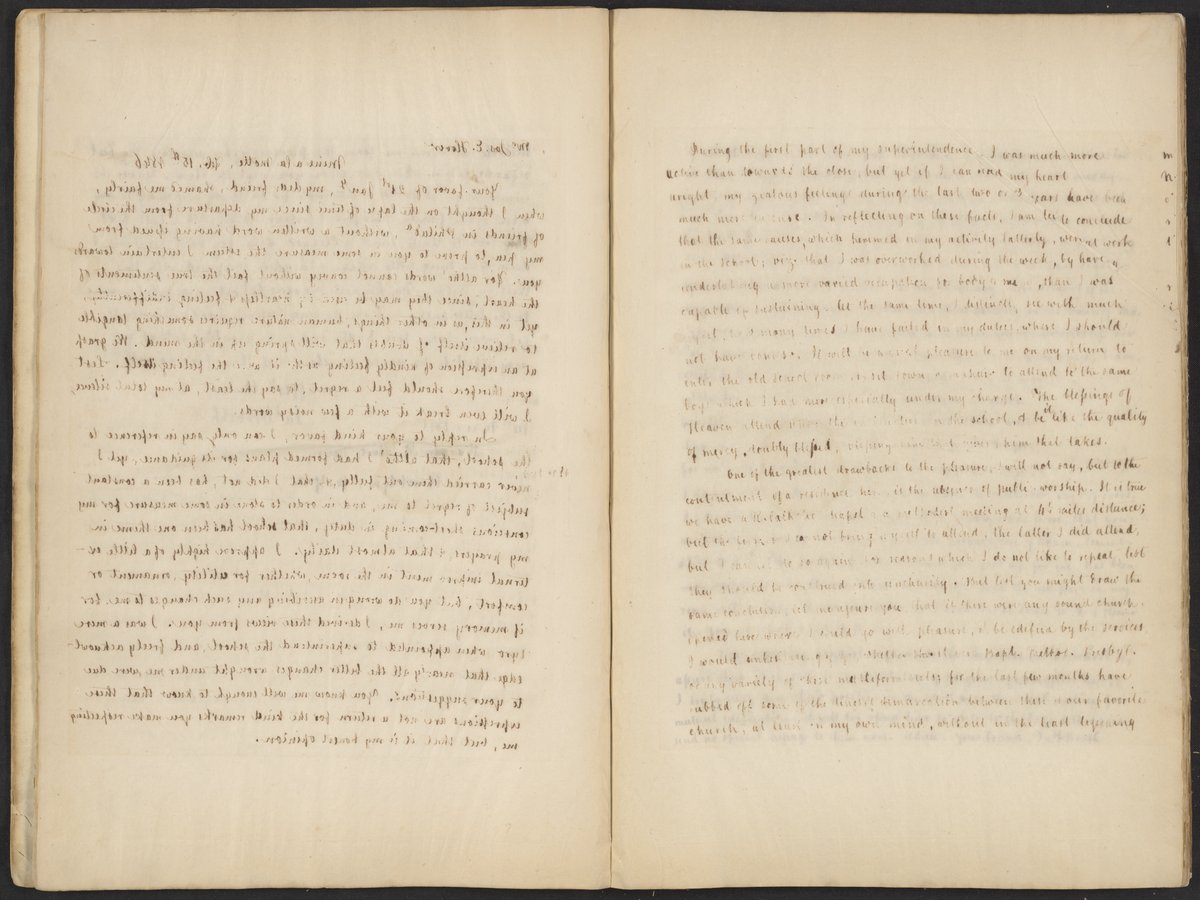 Mr. Jos. E. Hover
Mine a la Motte, Feb. 15th 1846
Your favor of 21st Jan y, my dear friend, shamed me fairly,
when I thought on the lapse of time since my departure from the circle
of friends in Philada, without a written word having issued from
my pen, to prove to you in some measure the esteem I entertain towards
you. For altho' words cannot convey without fail the true sentiments of
the heart, since they may be used by heartless & feeling indifferently,
yet in this, as in other things, human nature requires something tangible
to relieve itself of doubts that will spring up in the mind. We grasp
at an expression of kindly feeling as tho' it were the feeling itself. Lest
you therefore should feel a regret, to say the least, at my total silence,
I will even break it with a few noisy words.
In reply to your kind favor, I can only say in reference to
the school, that altho' I had formed plans for its guidance, yet I
never carried them out fully, & that I did not, has been a constant
subject of regret to me, and in order to atone in some measure for my
conscious short-coming in duty, that school has been one theme in
my prayers, & that almost daily. I approve highly of a little ex-
ternal improvement in the room, whether for utility, ornament or
comfort, but you do wrong in ascribing any such changes to me, for
if memory serves me, I derived these views from you. I was a mere
tyro when appointed to superintend the school, and freely acknowl-
edge that nearly all the better changes wrought under me were due
to your suggestions. You know me well enough to know that these
expressions are not a return for the kind remarks you make respecting
me, but that it is my honest opinion.
During the first part of my superintendence I was much more
active than towards the close, but yet if I can read my heart
aright, my zealous feelings during the last two or 3 years have been
much more. In reflecting on these facts, I am led to conclude
that the same causes, which hemmed in my activity latterly, were at work
in the school; viz. that I was overworked during the week, by having
undertaken more varied occupation for body & mind, than I was
capable of sustaining. At the same time, I distinctly see with much
regret, that many times I have failed in my duties, where I should
not have done so. It will be a great pleasure to me on my return to
enter the old school room and sit down to attend to the same
boys which I had more especially under my charge. The blessings of
Heaven attend upon the in the school, & be like the quality
of mercy, doubly blessed, him that gives & him that takes.
One of the greatest drawbacks to the pleasure, I will not say, but to the
contentment of a residence here is the absence of public worship. It is true
we have a Catholic chapel & a methodist meeting at 4½ miles distance;
but the I cannot bring myself to attend, the latter I did attend,
but I cannot do so again, for reasons which I do not like to repeat, lest
they should be construed into uncharity. But lest you might draw the
same conclusion, let me assure you that if there were any sound church
opened here I would go with pleasure, & be edified by the services,
I would whether it be Bapt. Methos. Presbyt.
or any variety of these for the last few months have
rubbed off some of the lines of demarcation between these & our favorite
church, at least in my own mind, without in the least lessening